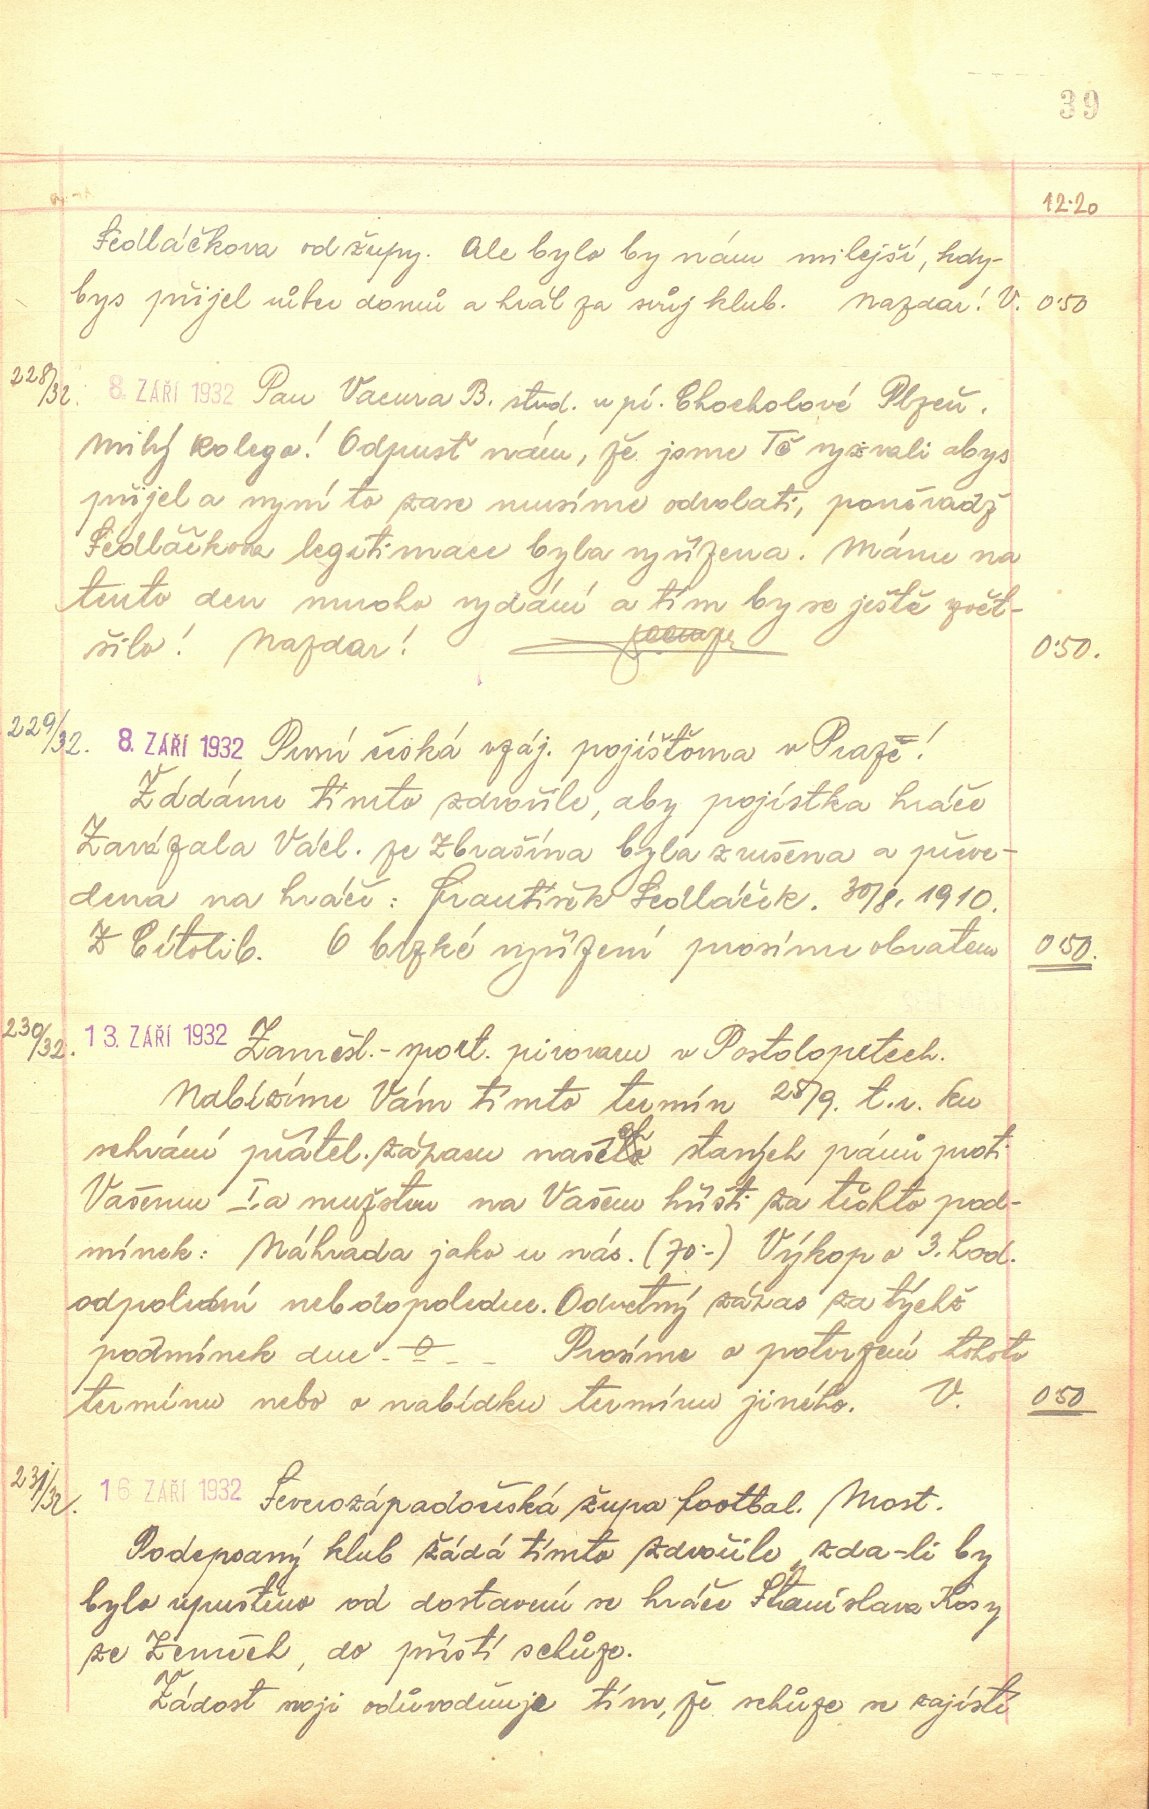 39
12·20
Sedláčkova od župy. Ale bylo by nám milejší, kdy-
bys přijel vůbec domů a hrál za svůj klub. Nazdar! V. 0·50
228/32. 8. ZÁŘÍ 1932 Pan Vacura B. stud. u pí. Chocholové Plzeň.
Milý kolego! Odpusť nám, že jsme Tě vyzvali abys
přijel a nyní to zase musíme odvolati, poněvadž
Sedláčkova legitimace byla vyřízena. Máme na
tento den mnoho vydání a tím by se ještě zvět-
šilo! Nazdar! 0·50.
229/32. 8. ZÁŘÍ 1932 První česká vzáj. pojišťovna v Praze!
Žádáme tímto zdvořile, aby pojistka hráče
Zavázala Václ. ze Zbrašína byla zrušena a převe-
dena na hráče: František Sedláček. 30/8. 1910.
Z Cítolib. O brzké vyřízení prosíme obratem 0·50.
230/32. 13. ZÁŘÍ 1932 Zaměst.-sport. pivovaru v Postoloprtech.
Nabízíme Vám tímto termín 28/9. t.r. ku
sehrání přátel. zápasu našeho starých pánů proti
Vašemu I.a mužstvu na Vašem hřišti za těchto pod-
mínek: Náhrada jako u nás. (70·-) Výkop o 3. hod.
odpolední neb dopoledne. Odvetný zápas za týchž
podmínek dne - 0 - - - Prosíme o potvrzení tohoto
termínu nebo o nabídku termínu jiného. V. 0·50
231/32. 16 ZÁŘÍ 1932 Severozápadočeská župa footbal. Most.
Podepsaný klub žádá tímto zdvořile, zda-li by
bylo upuštěno od dostavení se hráče Stanislava Kosy
ze Zeměch, do příští schůze.
Žádost svoji odůvodňuje tím, že schůze se zajisté